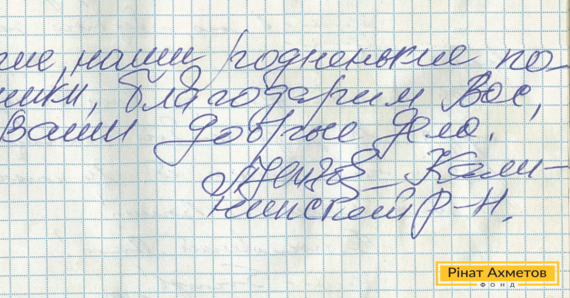 гие наши родненькие по-
ники, благодарим Вас,
ваши добрые дела.
Кали-
нинский р-н.
Рінат Ахметов
ФОНД